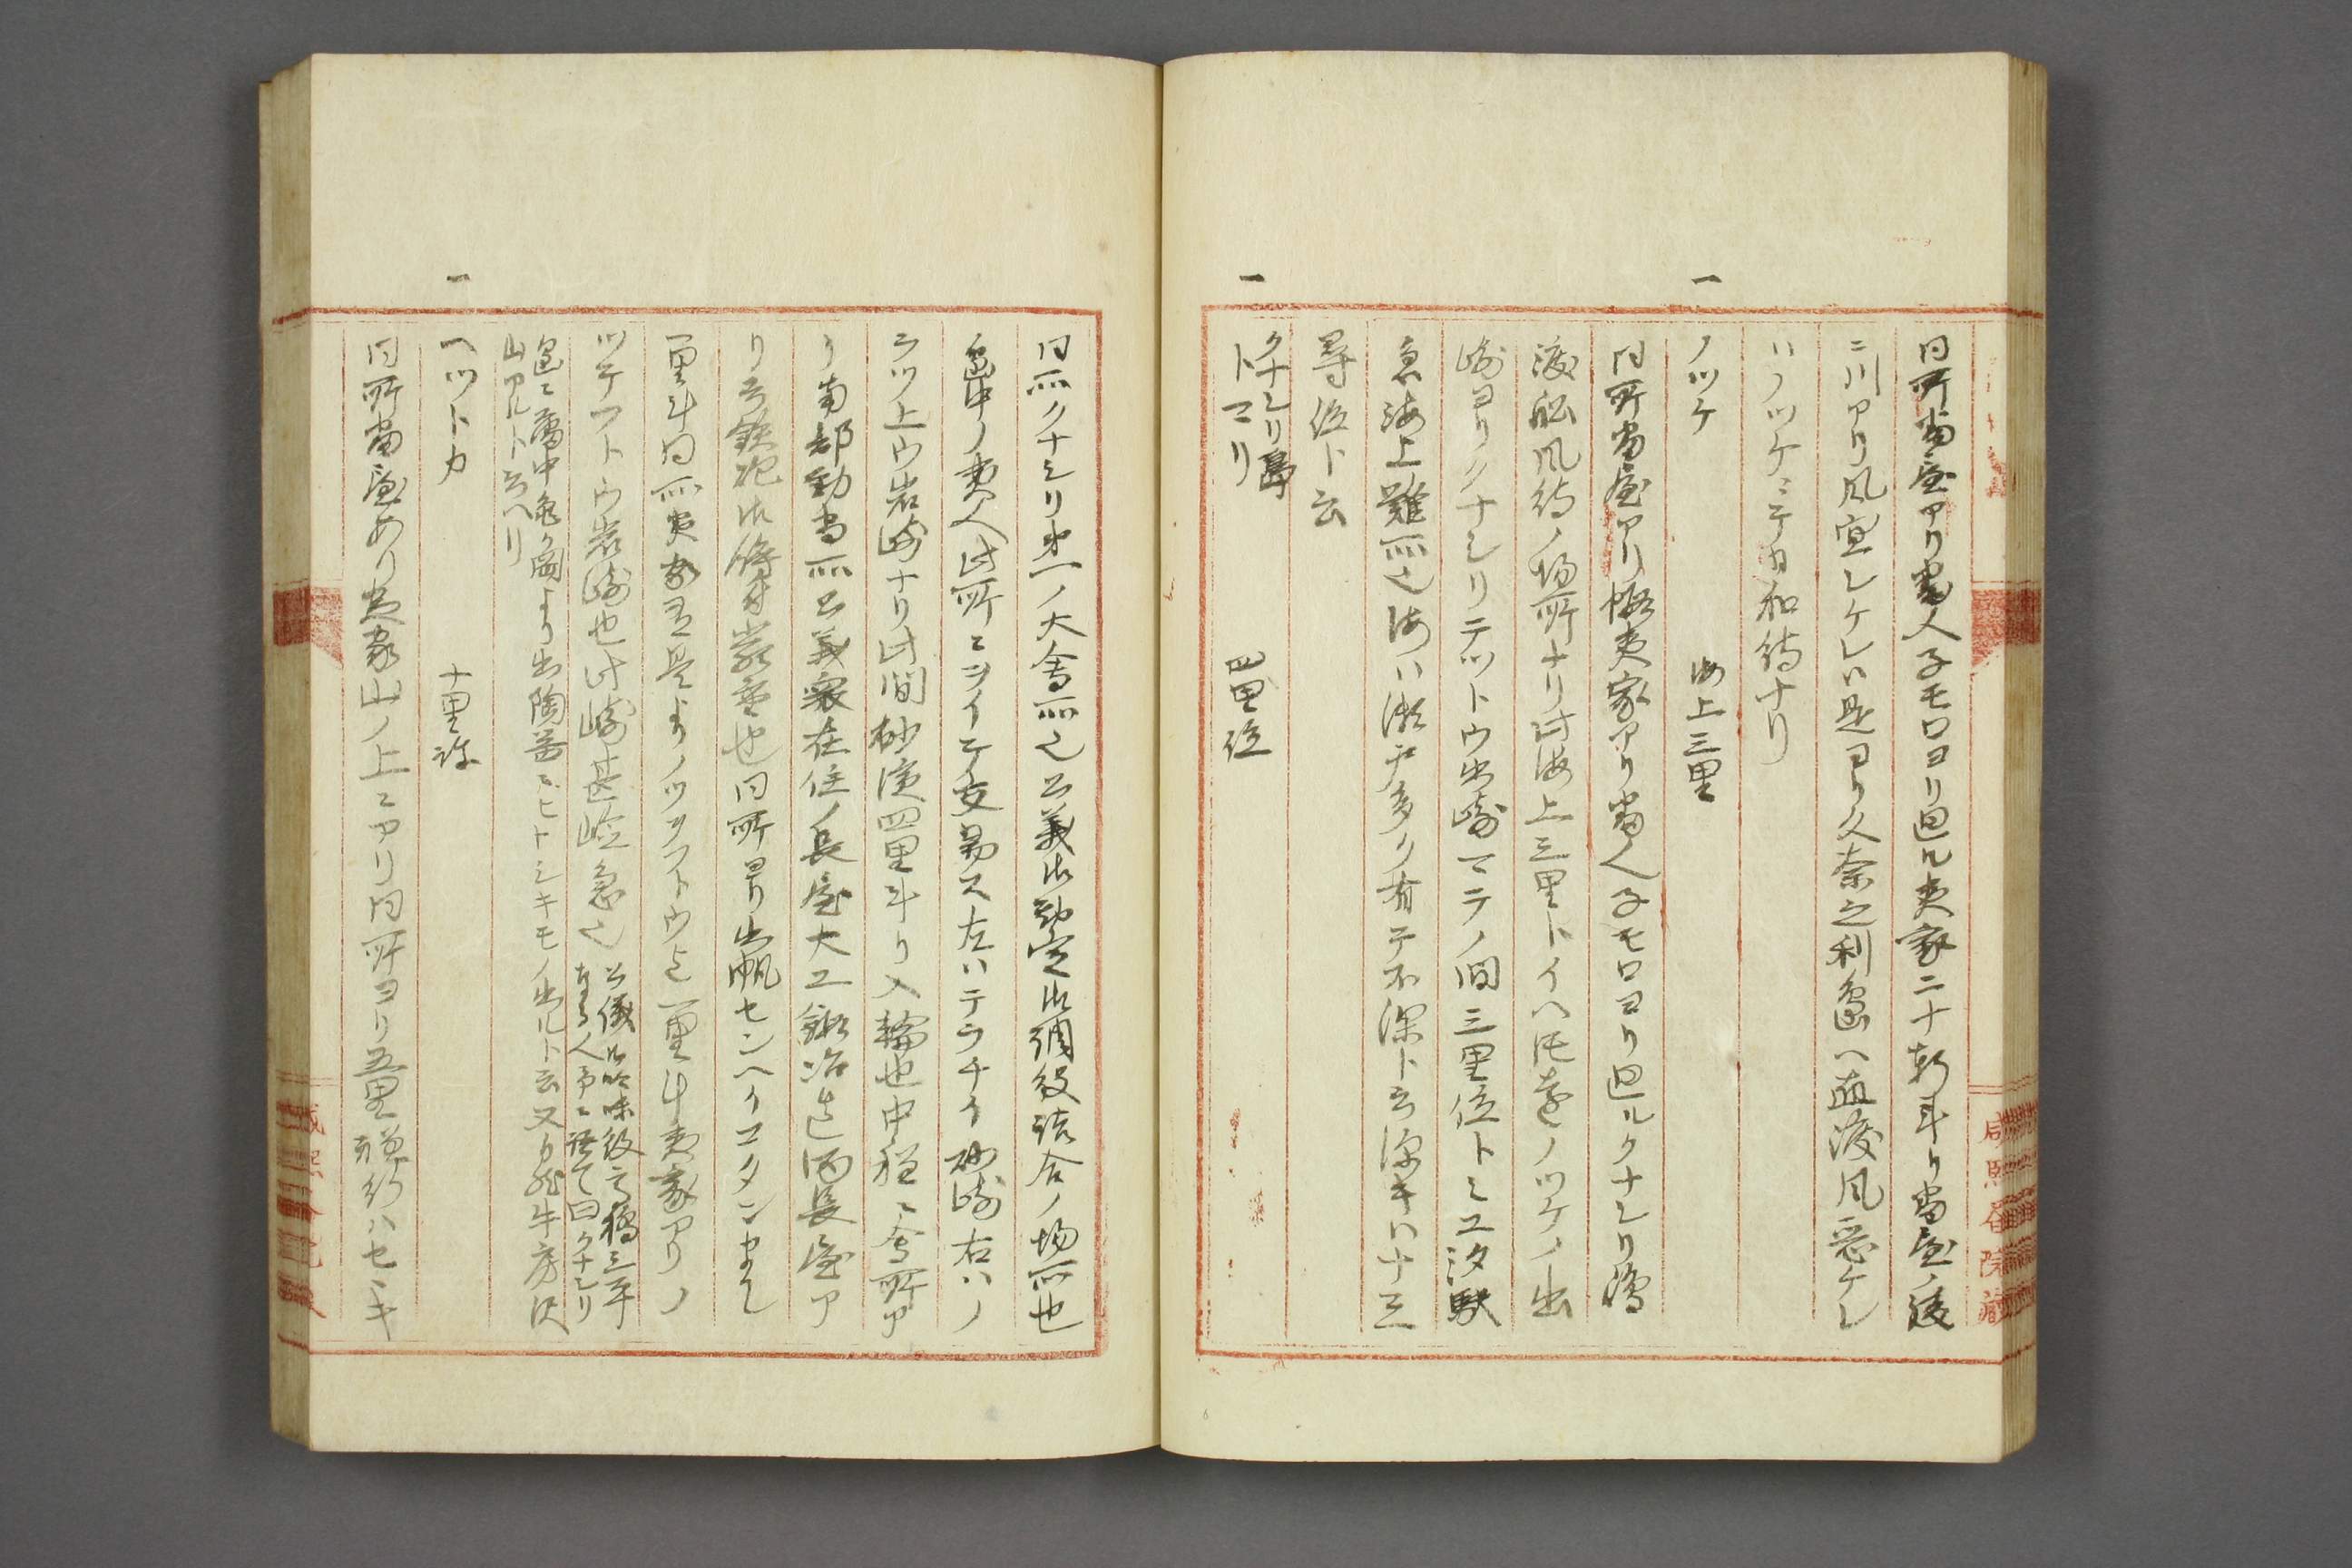 同所番屋アリ番人子モロヨリ廻ル夷家二十軒斗リ番屋ノ後
ニ川アリ風宜シケレハ是ヨリ久奈之利島ヘ直渡風悪ケレ
ハノツケニテ日和待ナリ
一 ノツケ 海上三里
同所番屋アリ帳夷家アリ番人子モロヨリ廻ルクナシリ島
渡船風待ノ場所ナリ此海上三里トイヘ圧遠ノツケノ出
崎ヨリクナシリテツトウ出崎マテノ間三里位トミユ汐駛
急海上難所也海ハ瀬戸多ク有テ不深ト云深キハ十三
尋位ト云
一 クナシリ島
トマリ 四里位
同所クナシリ第一ノ大会所也公義御勘定御調役詰合ノ場所也
島中ノ夷人此所ニヲイテ交易ス左ハテラチイ砂崎右ハノ
ラツ上ウ岩崎ナリ此間砂浜四里斗リ入輪也中程ニ会所ア
リ南部勤番所公義衆在住ノ長屋大工鍛冶造酒長屋ア
リ云鉄砲御備付厳重也同所ヨリ出帆センヘイコタンまて
一里斗同所夷家有是よりノツツフトウ迄一里斗夷家アリノ
ツテフトウ岩崎也此崎甚嶮急也 公儀御吟味役高橋三平
なる人予ニ語て曰クナシリ
島ニ蕃中亀ヶ岡より出陶器ニヒトシキモノ出ルト云又白龍牛房沢
山アルト云ヘリ
一 ヘツトカ 十里詠
同所番屋あり夷家山ノ上ニアリ同所ヨリ五里程行ハセヽキ